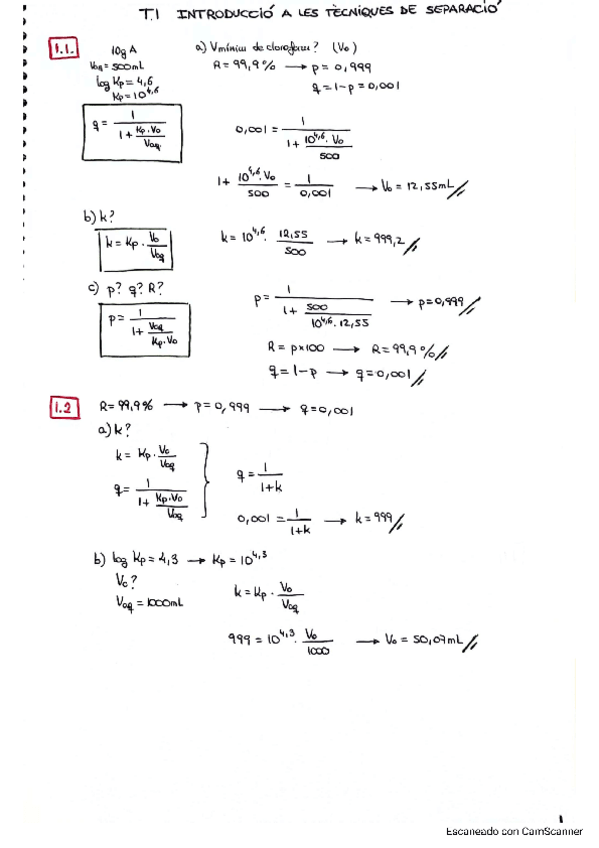 T.1 INTRODUCCIÓ A LES TÈCNIQUES DE SEPARACIÓ
1.1. 10g A a) V mínim de cloroform? (Vo)
Vaq = 500mL R = 99,9% → p = 0,999
log Kp = 4,6 q = 1-p = 0,001
Kp = 10^4,6
q = 1 / (1 + Kp·Vo/Vaq) 0,001 = 1 / (1 + 10^4,6·Vo/500)
1 + 10^4,6·Vo/500 = 1/0,001 → Vo = 12,55mL //
b) k?
k = Kp · Vo/Vaq k = 10^4,6 · 12,55/500 → k = 999,2 //
c) p? q? R?
p = 1 / (1 + Vaq/Kp·Vo) p = 1 / (1 + 500/10^4,6·12,55) → p = 0,999 //
R = p×100 → R = 99,9% //
q = 1-p → q = 0,001 //
1.2 R = 99,9% → p = 0,999 → q = 0,001
a) k?
k = Kp · Vo/Vaq
q = 1 / (1 + Kp·Vo/Vaq) q = 1/(1+k)
0,001 = 1/(1+k) → k = 999 //
b) log Kp = 4,3 → Kp = 10^4,3
Vo?
Vaq = 1000mL k = Kp · Vo/Vaq
999 = 10^4,3 · Vo/1000 → Vo = 50,07mL //
1
Escaneado con CamScanner